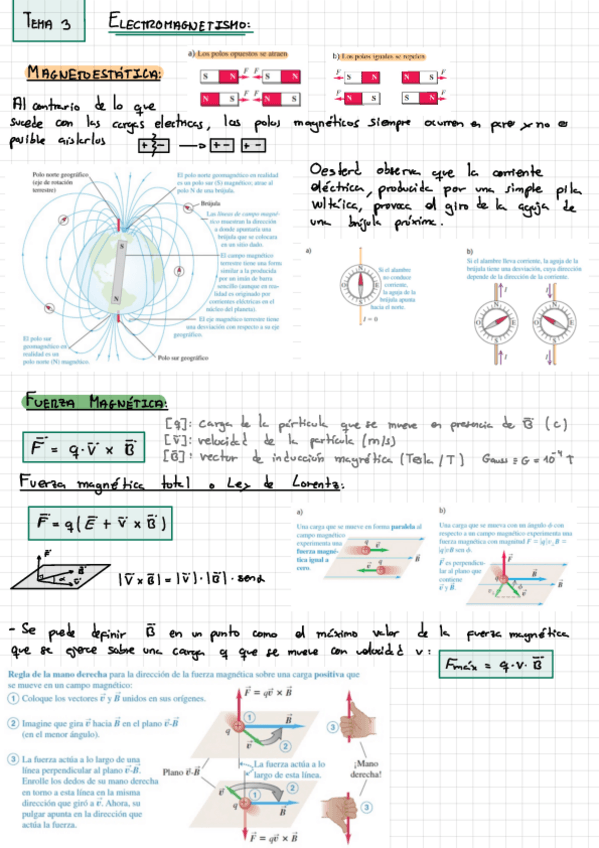 TEMA 3
ELECTROMAGNETISMO:
a) Los polos opuestos se atraen
b) Los polos iguales se repelen
MAGNETOESTÁTICA:
F F F F
S N S N S N N S
N S N S N S S N
Al contrario de lo que
sucede con las cargas electricas, los polos magnéticos siempre ocurren en pares y no es
posible aislarlos
Polo norte geográfico
(eje de rotación
terrestre)
El polo norte geomagnético en realidad
es un polo sur (S) magnético; atrae al
polo N de una brújula.
Brújula
Las líneas de campo magné-
tico muestran la dirección
a donde apuntaría una
brújula que se colocara
en un sitio dado.
El campo magnético
terrestre tiene una forma
similar a la producida
por un imán de barra
sencillo (aunque en rea-
lidad es originado por
corrientes eléctricas en el
núcleo del planeta).
El eje magnético terrestre tiene
una desviación con respecto a su eje
geográfico.
S
N
El polo sur
geomagnético en
realidad es un
polo norte (N) magnético.
Polo sur geográfico
Oesterd observa que la corriente
eléctrica, producida por una simple pila
voltáica, provoca el giro de la aguja de
una brújula próxima.
a)
Si el alambre
no conduce
corriente,
la aguja de la
brújula apunta
hacia el norte.
I = 0
b)
Si el alambre lleva corriente, la aguja de la
brújula tiene una desviación, cuya dirección
depende de la dirección de la corriente.
I I
I I
FUERZA MAGNÉTICA:
F = q · v x B
[q]: carga de la párticula que se mueve en presencia de B (C)
[v]: velocidad de la partícula (m/s)
[B]: vector de inducción magnética (Tesla / T) Gauss ≡ G = 10⁻⁴ T
Fuerza magnética total o Ley de Lorentz:
F = q(E + v x B)
F
B
α
v
|v x B| = |v| · |B| · senα
a)
Una carga que se mueve en forma paralela al
campo magnético
experimenta una
fuerza magné-
tica igual a
cero.
b)
Una carga que se mueve con un ángulo ϕ con
respecto a un campo magnético experimenta una
fuerza magnética con magnitud F = |q|v⊥B =
|q|vB sen ϕ.
F es perpendicu-
lar al plano que
contiene
v y B.
- Se puede definir B en un punto como el máximo valor de la fuerza magnética
que se ejerce sobre una carga q que se mueve con velocidad v:
Fmáx = q · v · B
Regla de la mano derecha para la dirección de la fuerza magnética sobre una carga positiva que
se mueve en un campo magnético:
1 Coloque los vectores v y B unidos en sus orígenes.
2 Imagine que gira v hacia B en el plano v-B
(en el menor ángulo).
3 La fuerza actúa a lo largo de una
línea perpendicular al plano v-B.
Enrolle los dedos de su mano derecha
en torno a esta línea en la misma
dirección que giró a v. Ahora, su
pulgar apunta en la dirección que
actúa la fuerza.
F = qv × B
1
B
q
v
2
3
Plano v-B
La fuerza actúa a lo
largo de esta línea.
¡Mano
derecha!
v
2
q
1
B
3
F = qv × B